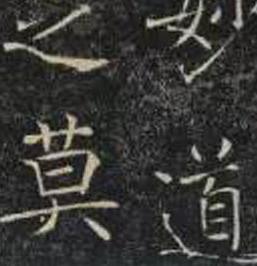 妙道
之莫